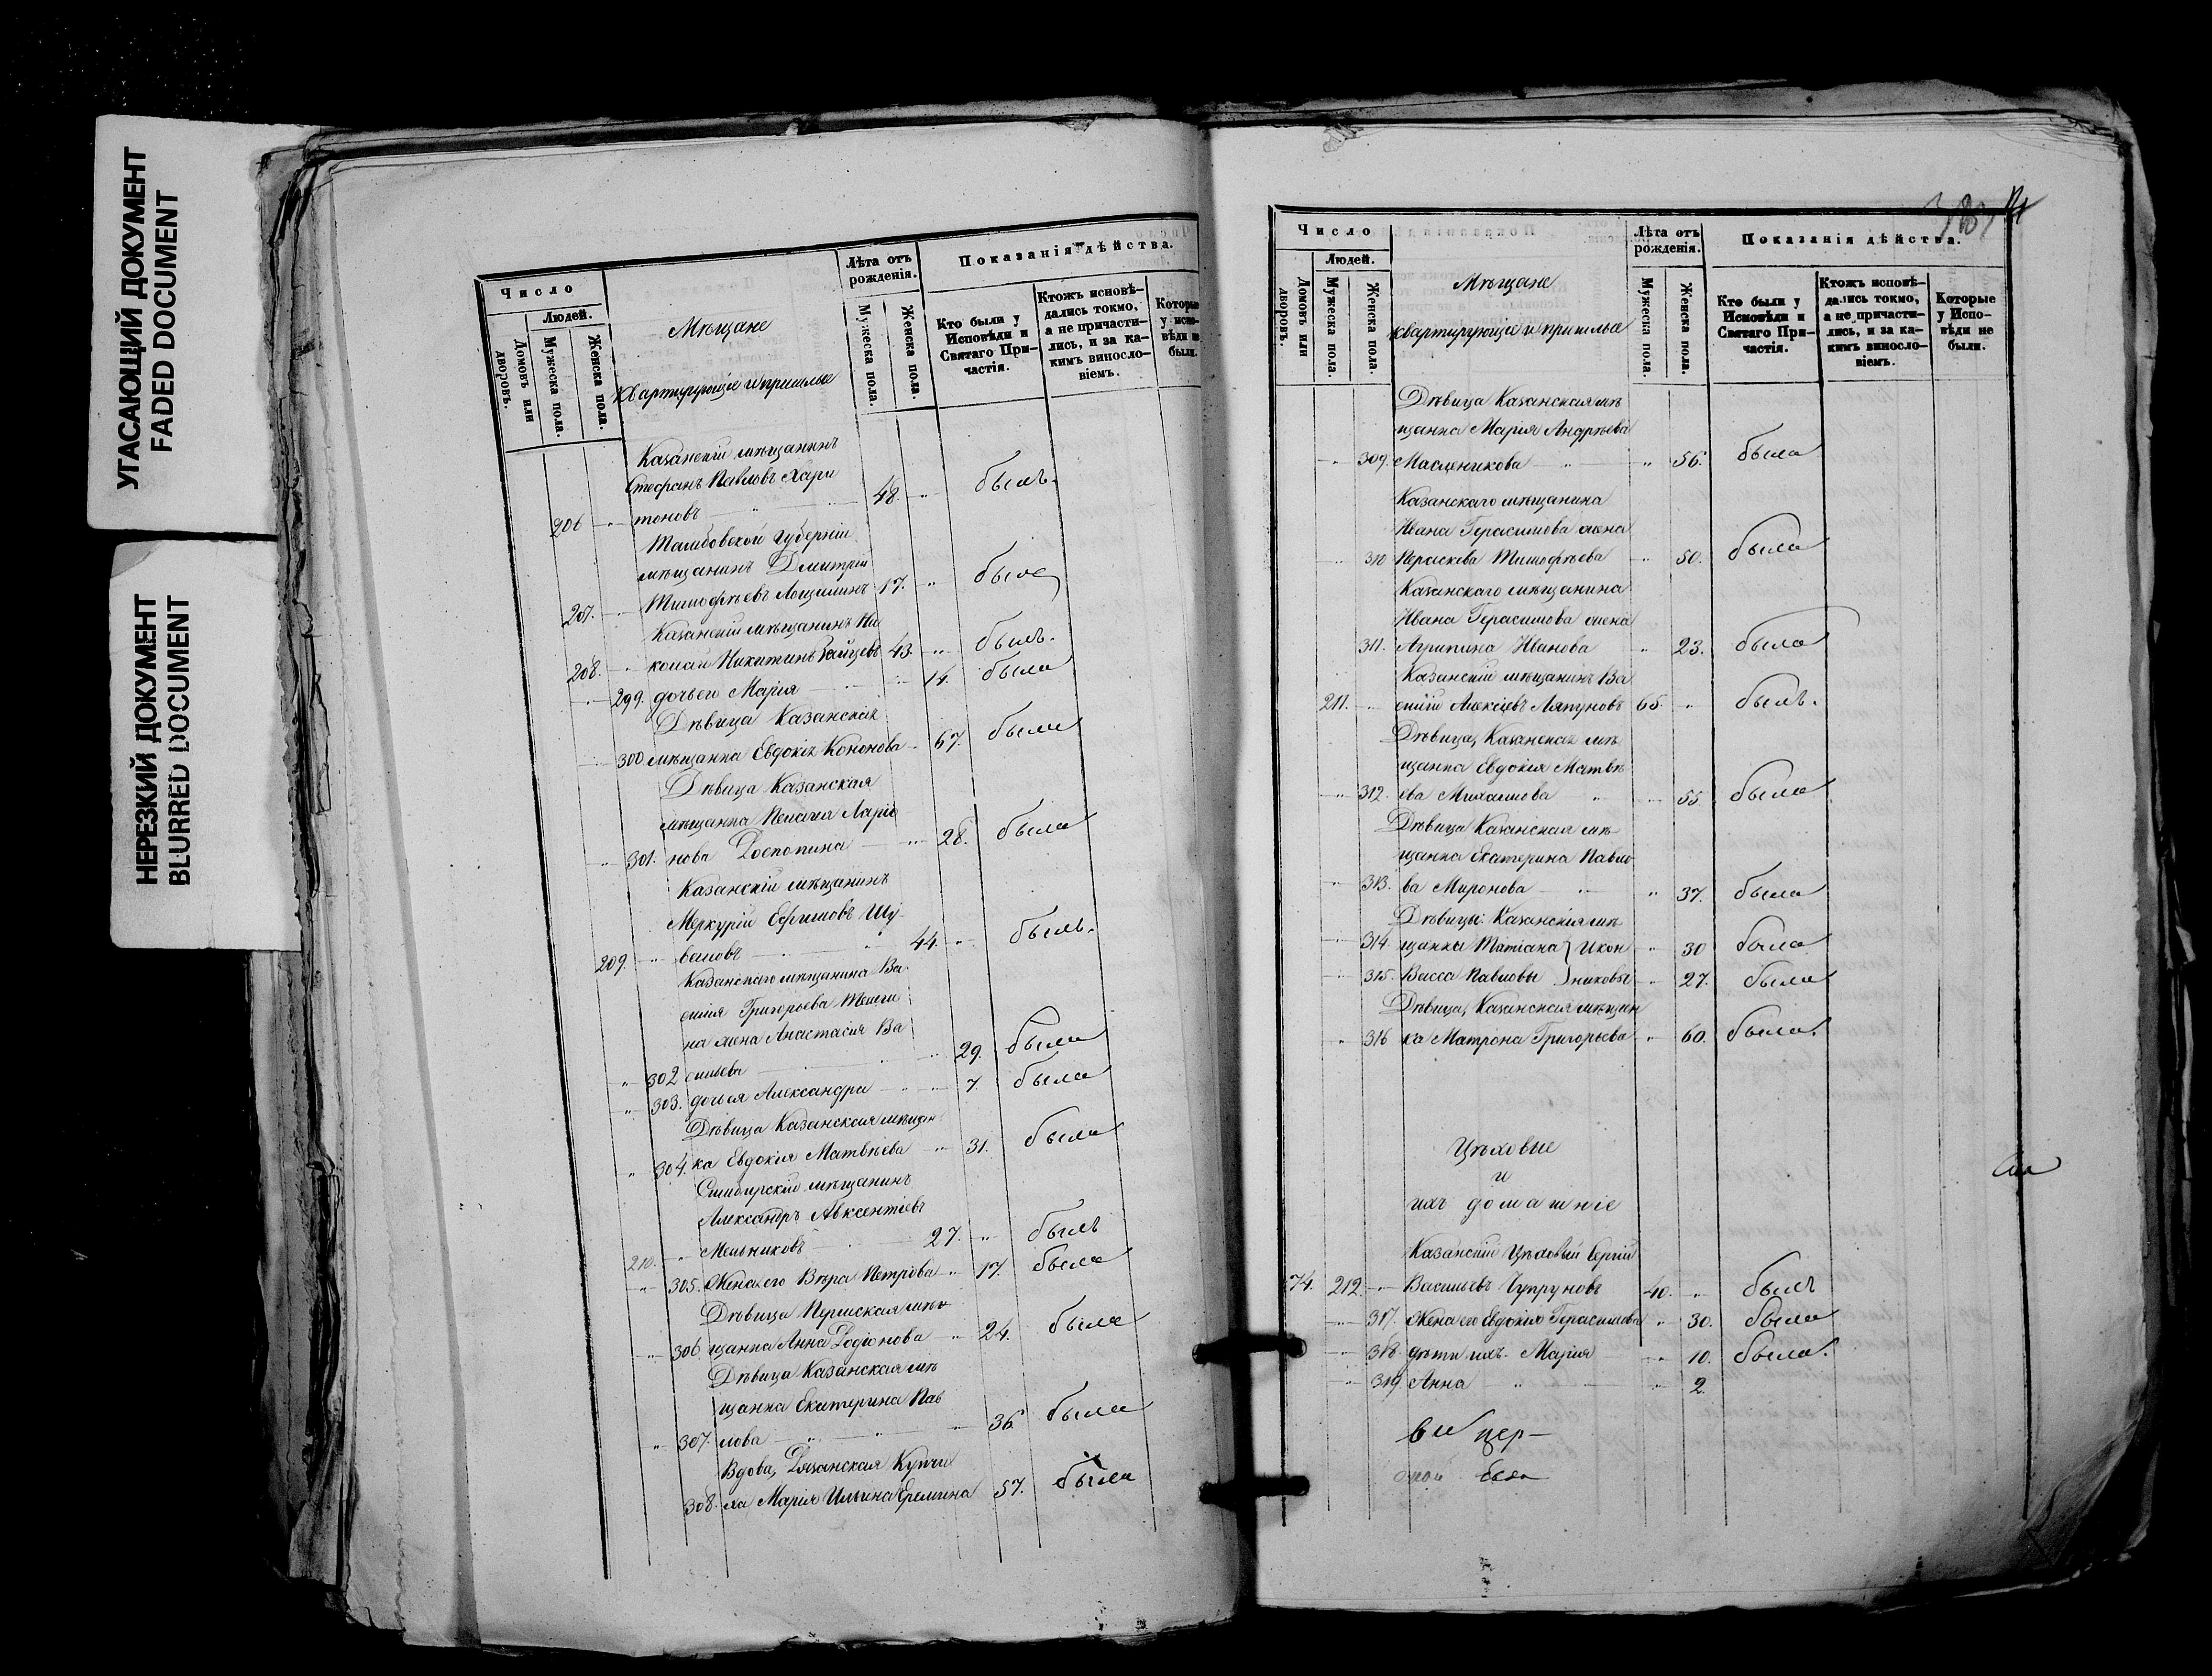 УГАСАЮЩИЙ ДОКУМЕНТ
FADED DOCUMENT
НЕРЕЗКИЙ ДОКУМЕНТ
BLURRED DOCUMENT
Число
Людей.
Домовъ или дворовъ.
Мужеска пола.
Женска пола.
Мѣщане
Квартирующіе и пришлые
Лѣта отъ рожденія.
Мужеска пола.
Женска пола.
Показанія дѣйства.
Кто были у Исповѣди и Святаго Причастія.
Ктожъ исповѣдались токмо, а не причастились, и за какимъ винословіемъ.
Которые
Казанскій мѣщанинъ
Стефанъ Павловъ Хари
206 тоновъ 48. былъ.
Тамбовской Губерніи
мѣщанинъ Дмитрій
207. Тимофѣевъ 17.
Казанскій мѣщанинъ Ни
208. колай Никитинъ Зайцевъ 43. былъ.
299. дочь его Марія 14. была
Дѣвица Казанская
300. мѣщанка Евдокія Кононова 67. была
Дѣвица Казанская
мѣщанка Пелагея Ларіо
301. нова Роспопина 28. была
Казанскій мѣщанинъ
Меркурій Ефимовъ Шу
209. валовъ 44. былъ.
Казанскаго мѣщанина Ва
силія Григорьева Телеги
на жена Анастасія Ва
302 сильева 29. была
303. дочь ея Александра 7. была
Дѣвица Казанская мѣщан
304. ка Евдокія Матвѣева 31. была
Симбирскій мѣщанинъ
Александръ Авксентіевъ
210. Мельниковъ 27. былъ
305. Жена его Вѣра Петрова 17. была
Дѣвица Пермская мѣ
306. щанка Анна Родіонова 24. была
Дѣвица Казанская мѣ
щанка Екатерина Пав
307. лова 36. была
Вдова, Рязанская Купчи
308. ха Марія Ильина Еремина 57. была
Число
Людей.
Домовъ или дворовъ.
Мужеска пола.
Женска пола.
Мѣщане
квартирующіе и пришлые
Лѣта отъ рожденія.
Мужеска пола.
Женска пола.
Показанія дѣйства.
Кто были у Исповѣди и Святаго Причастія.
Ктожъ исповѣдались токмо, а не причастились, и за какимъ винословіемъ.
Которые у Исповѣди не были.
Дѣвица Казанская мѣ
щанка Марія Андреева
309. Масленикова 56. была
Казанскаго мѣщанина
Ивана Герасимова жена
310 Параскева Тимофѣева 50. была
Казанскаго мѣщанина
Ивана Герасимова жена
311. Агрипина Иванова 23. была
Казанскій мѣщанинъ Ва
211. силій Алексѣевъ Ляпуновъ 65. былъ.
Дѣвица, Казанская мѣ
щанка Евдокія Матвѣ
312. ева Михайлова 55 была
Дѣвица Казанская мѣ
щанка Екатерина Павло
313. ва Миронова 37. была
Дѣвицы Казанскія мѣ
314. щанки Татіана } Икон 30 была
315. Васса Павловы } никовы 27. была
Дѣвица, Казанская мѣщан
316 ка Матрона Григорьева 60. была.
Цѣховые
и
ихъ домашніе
Казанскій Цѣховый Сергій
74. 212. Васильевъ Чупруновъ 40. былъ
317. Жена его Евдокія Герасимова 30. была
318. дѣти ихъ. Марія 10. была.
319. Анна 2.